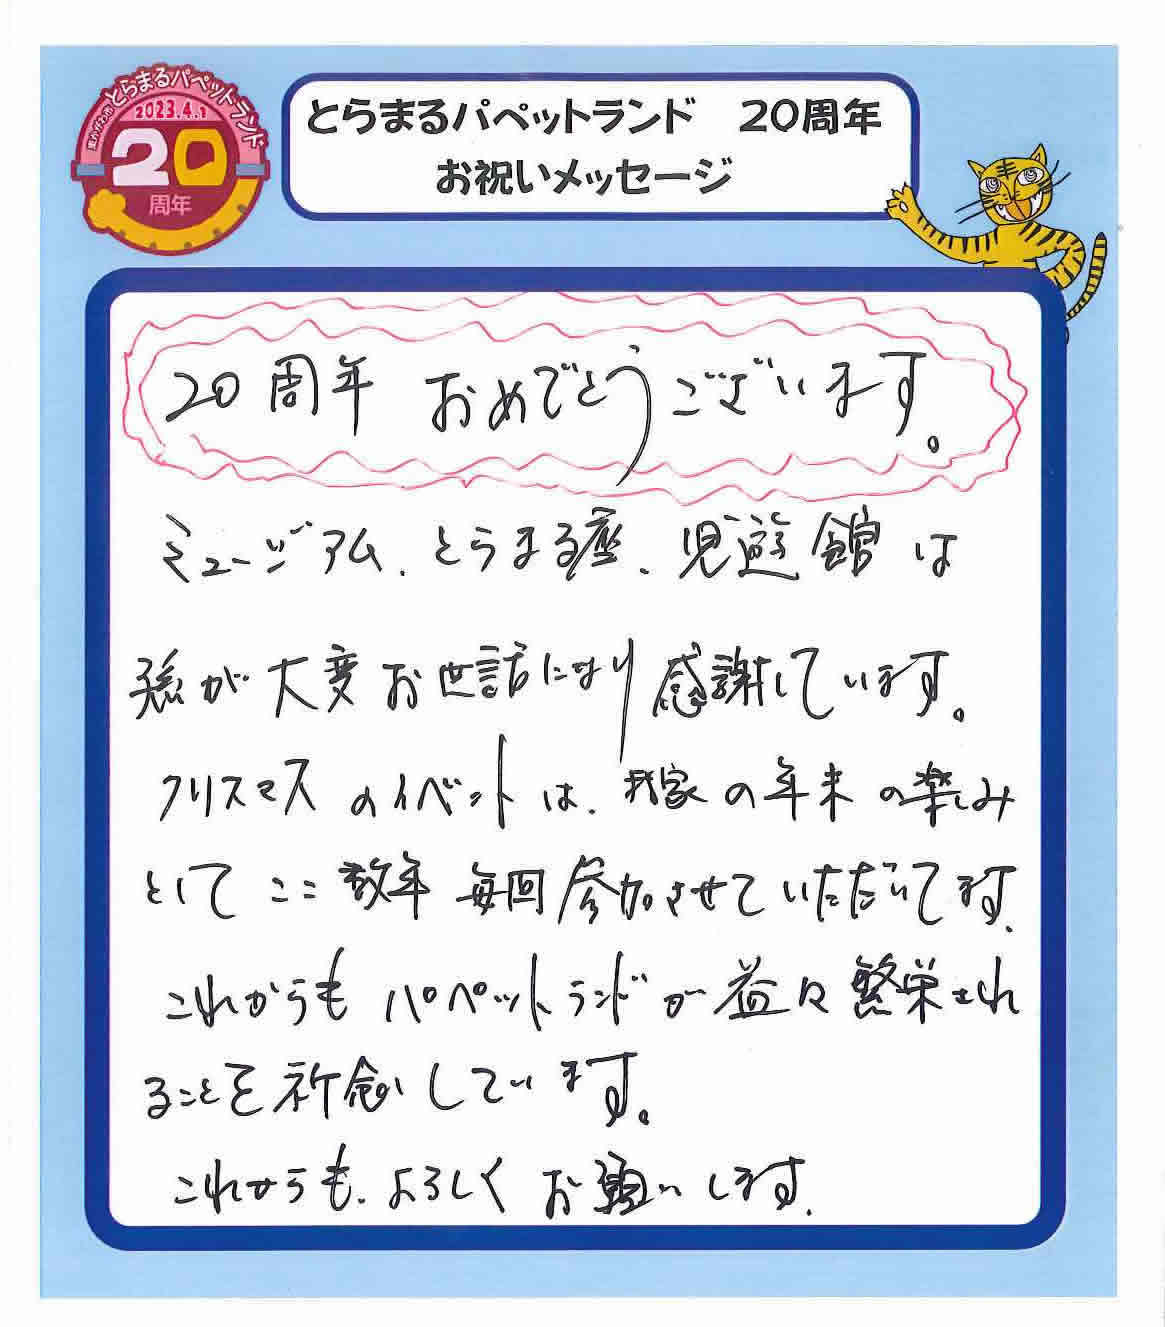 東かがわ市とらまるパペットランド
2023.4.1
20
周年
とらまるパペットランド 20周年
お祝いメッセージ
20周年 おめでとうございます。
ミュージアム、とらまる座、児遊館は
孫が大変お世話になり感謝しています。
クリスマスのイベントは、我家の年末の楽しみ
としてここ数年毎回参加させていただいてます。
これからもパペットランドが益々繁栄され
ることを祈念しています。
これからも、よろしくお願いします。